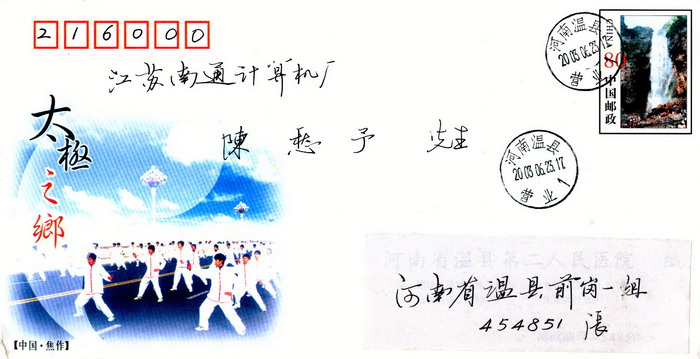 216000
江苏南通计算机厂
陳 愁 予 先生
太极之鄉
【中国·焦作】
80
中国邮政
CHINA
河南温县
2003.06.23.17
营业
1
河南温县
2003.06.23.17
营业
1
河南省温县第二人民医院
河南省温县前岗一组
454851 張